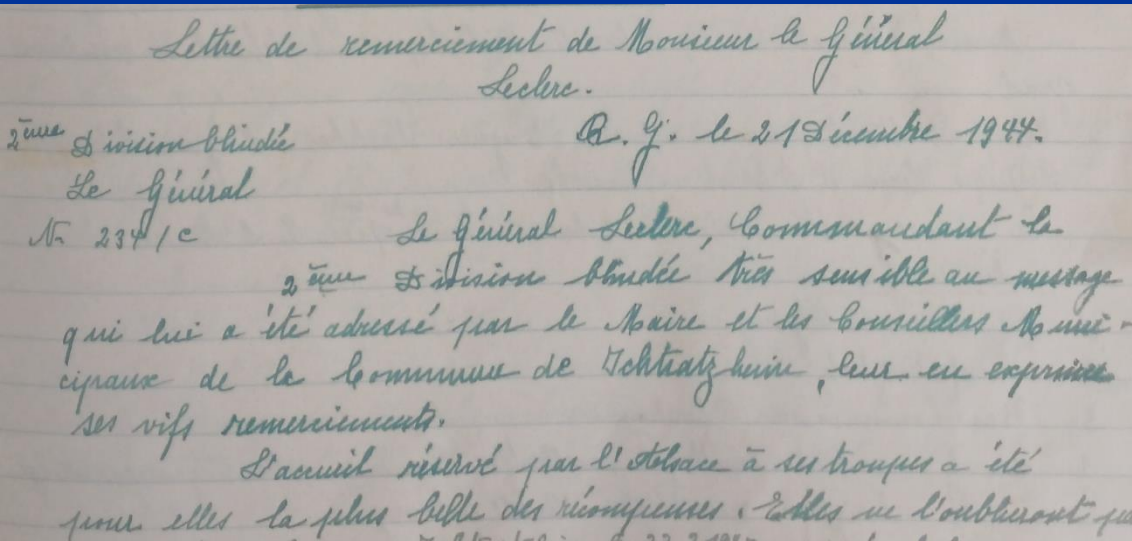 Lettre de remerciement de Monsieur le Général
Leclerc.
2ème Division blindée
Q. G. le 21 Décembre 1944.
Le Général
N. 234/C
Le Général Leclerc, Commandant la
2ème Division blindée très sensible au message
qui lui a été adressé par le Maire et les Conseillers Muni-
cipaux de la Commune de Ichtratzheim, leur en exprime
ses vifs remerciements.
L'accueil réservé par l'Alsace à ses troupes a été
pour elles la plus belle des récompenses. Elles ne l'oublieront